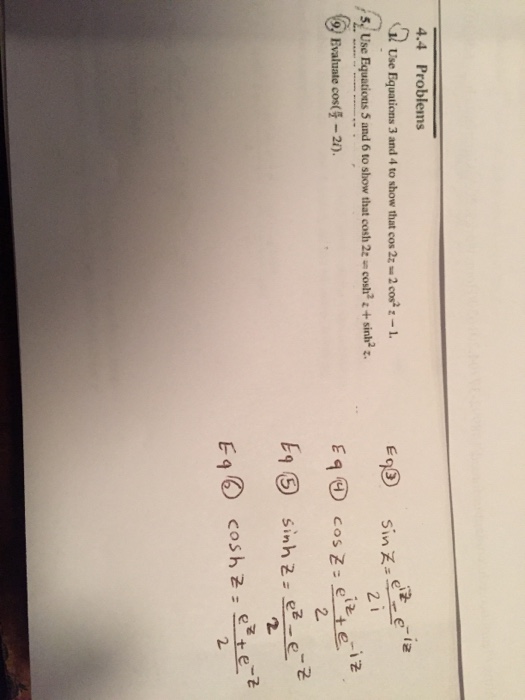 4.4 Problems
1. Use Equations 3 and 4 to show that cos 2z = 2 cos² z − 1.
5. Use Equations 5 and 6 to show that cosh 2z = cosh² z + sinh² z.
9. Evaluate cos(π/2 − 2i).
Eq③ sin z = (e^{iz} − e^{−iz})/2i
Eq④ cos z = (e^{iz} + e^{−iz})/2
Eq⑤ sinh z = (e^z − e^{−z})/2
Eq⑥ cosh z = (e^z + e^{−z})/2